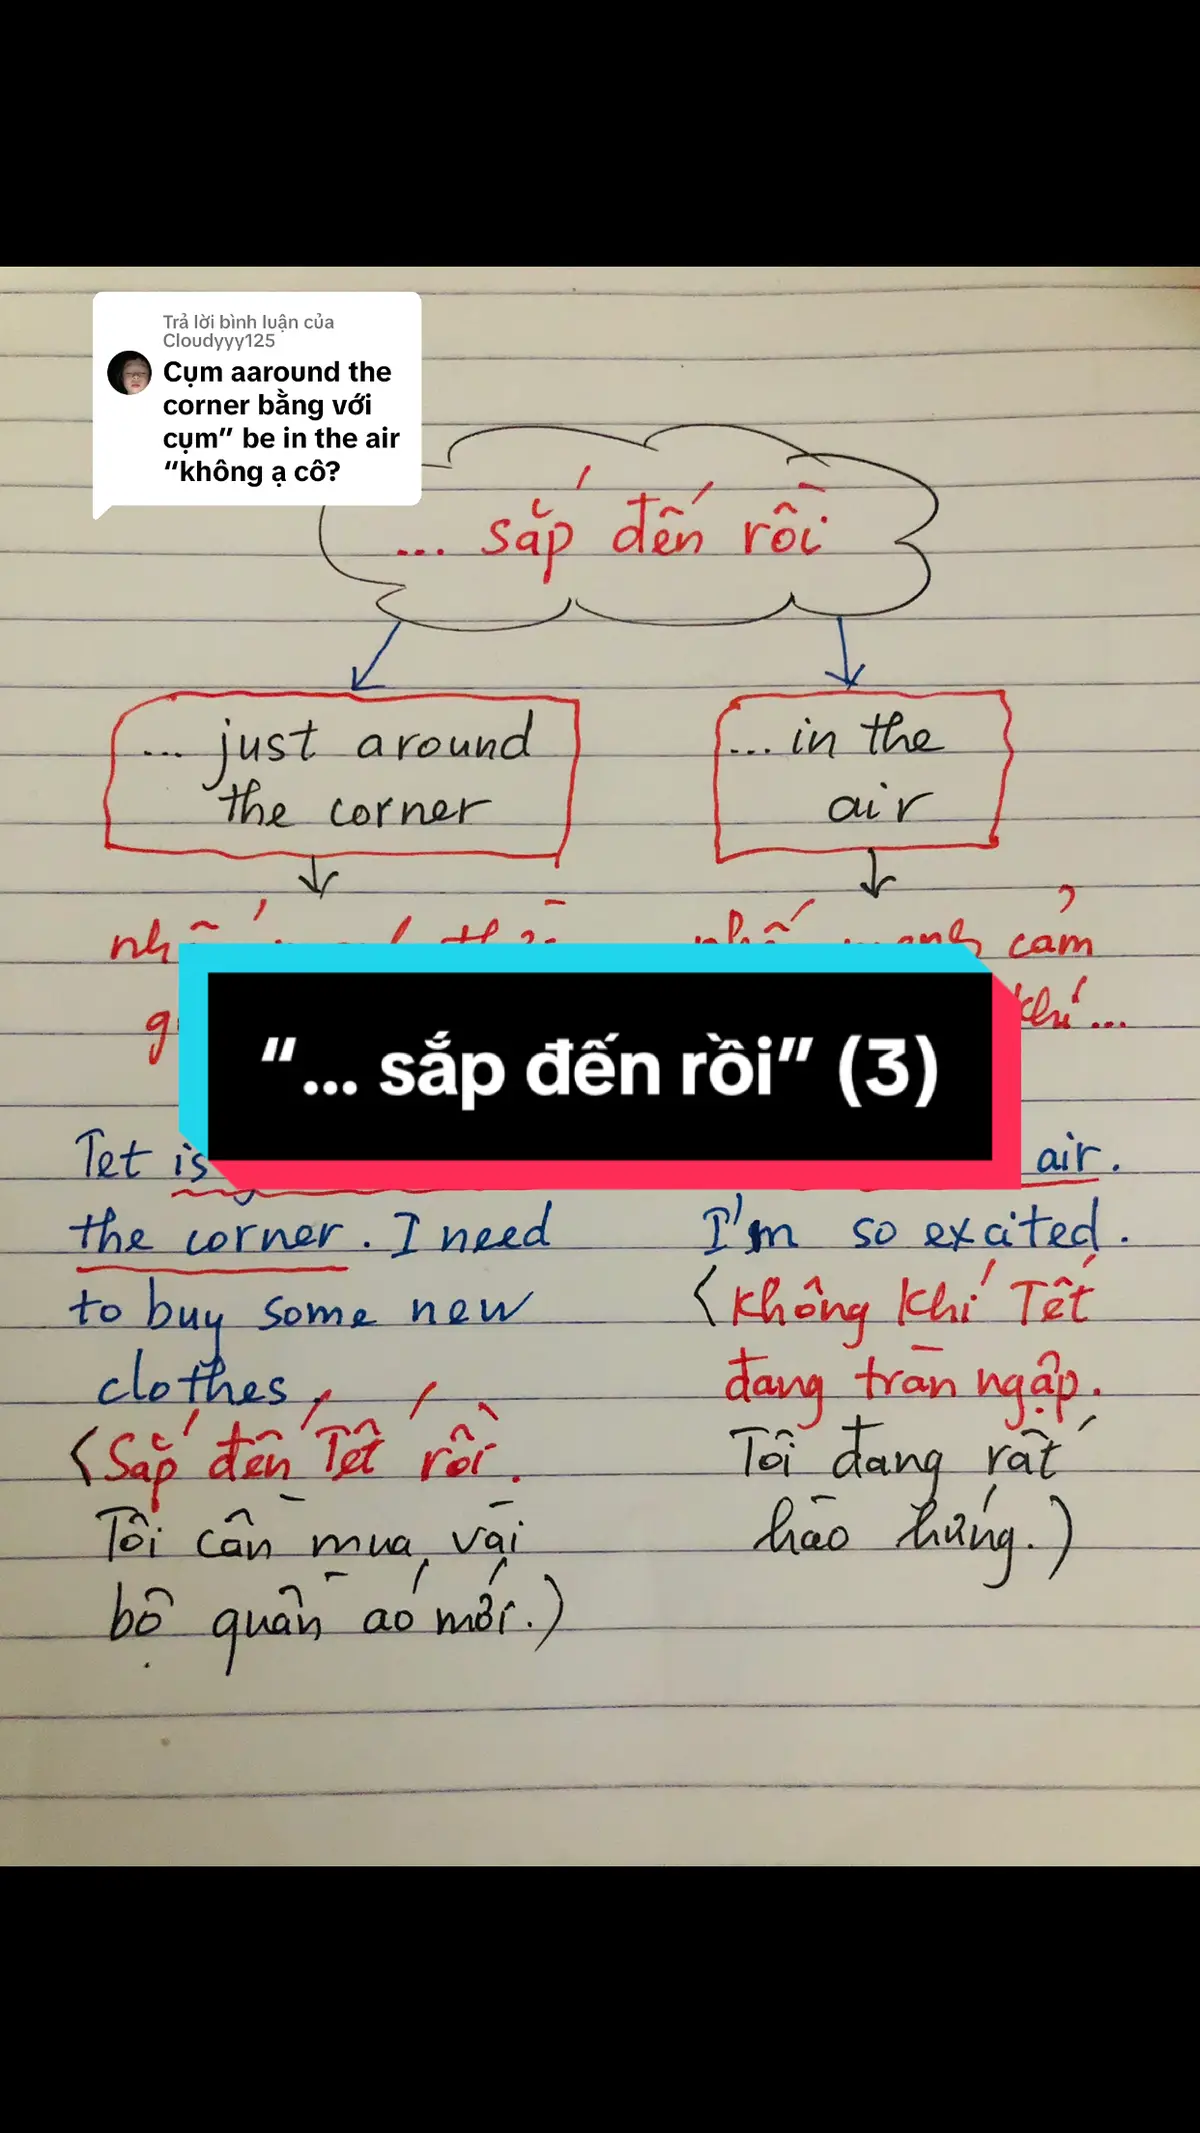 Trả lời bình luận của
Cloudyyy125
Cụm aaround the
corner bằng với
cụm” be in the air
“không ạ cô?
... sắp đến rồi
... just around
the corner
... in the
air
cảm
khí...
“... sắp đến rồi” (3)
Tet is
the corner. I need
to buy some new
clothes,
(Sắp đến Tết rồi.
Tôi cần mua vài
bộ quần áo mới.)
air.
I'm so excited.
(Không khí Tết
đang tràn ngập.
Tôi đang rất
hào hứng.)